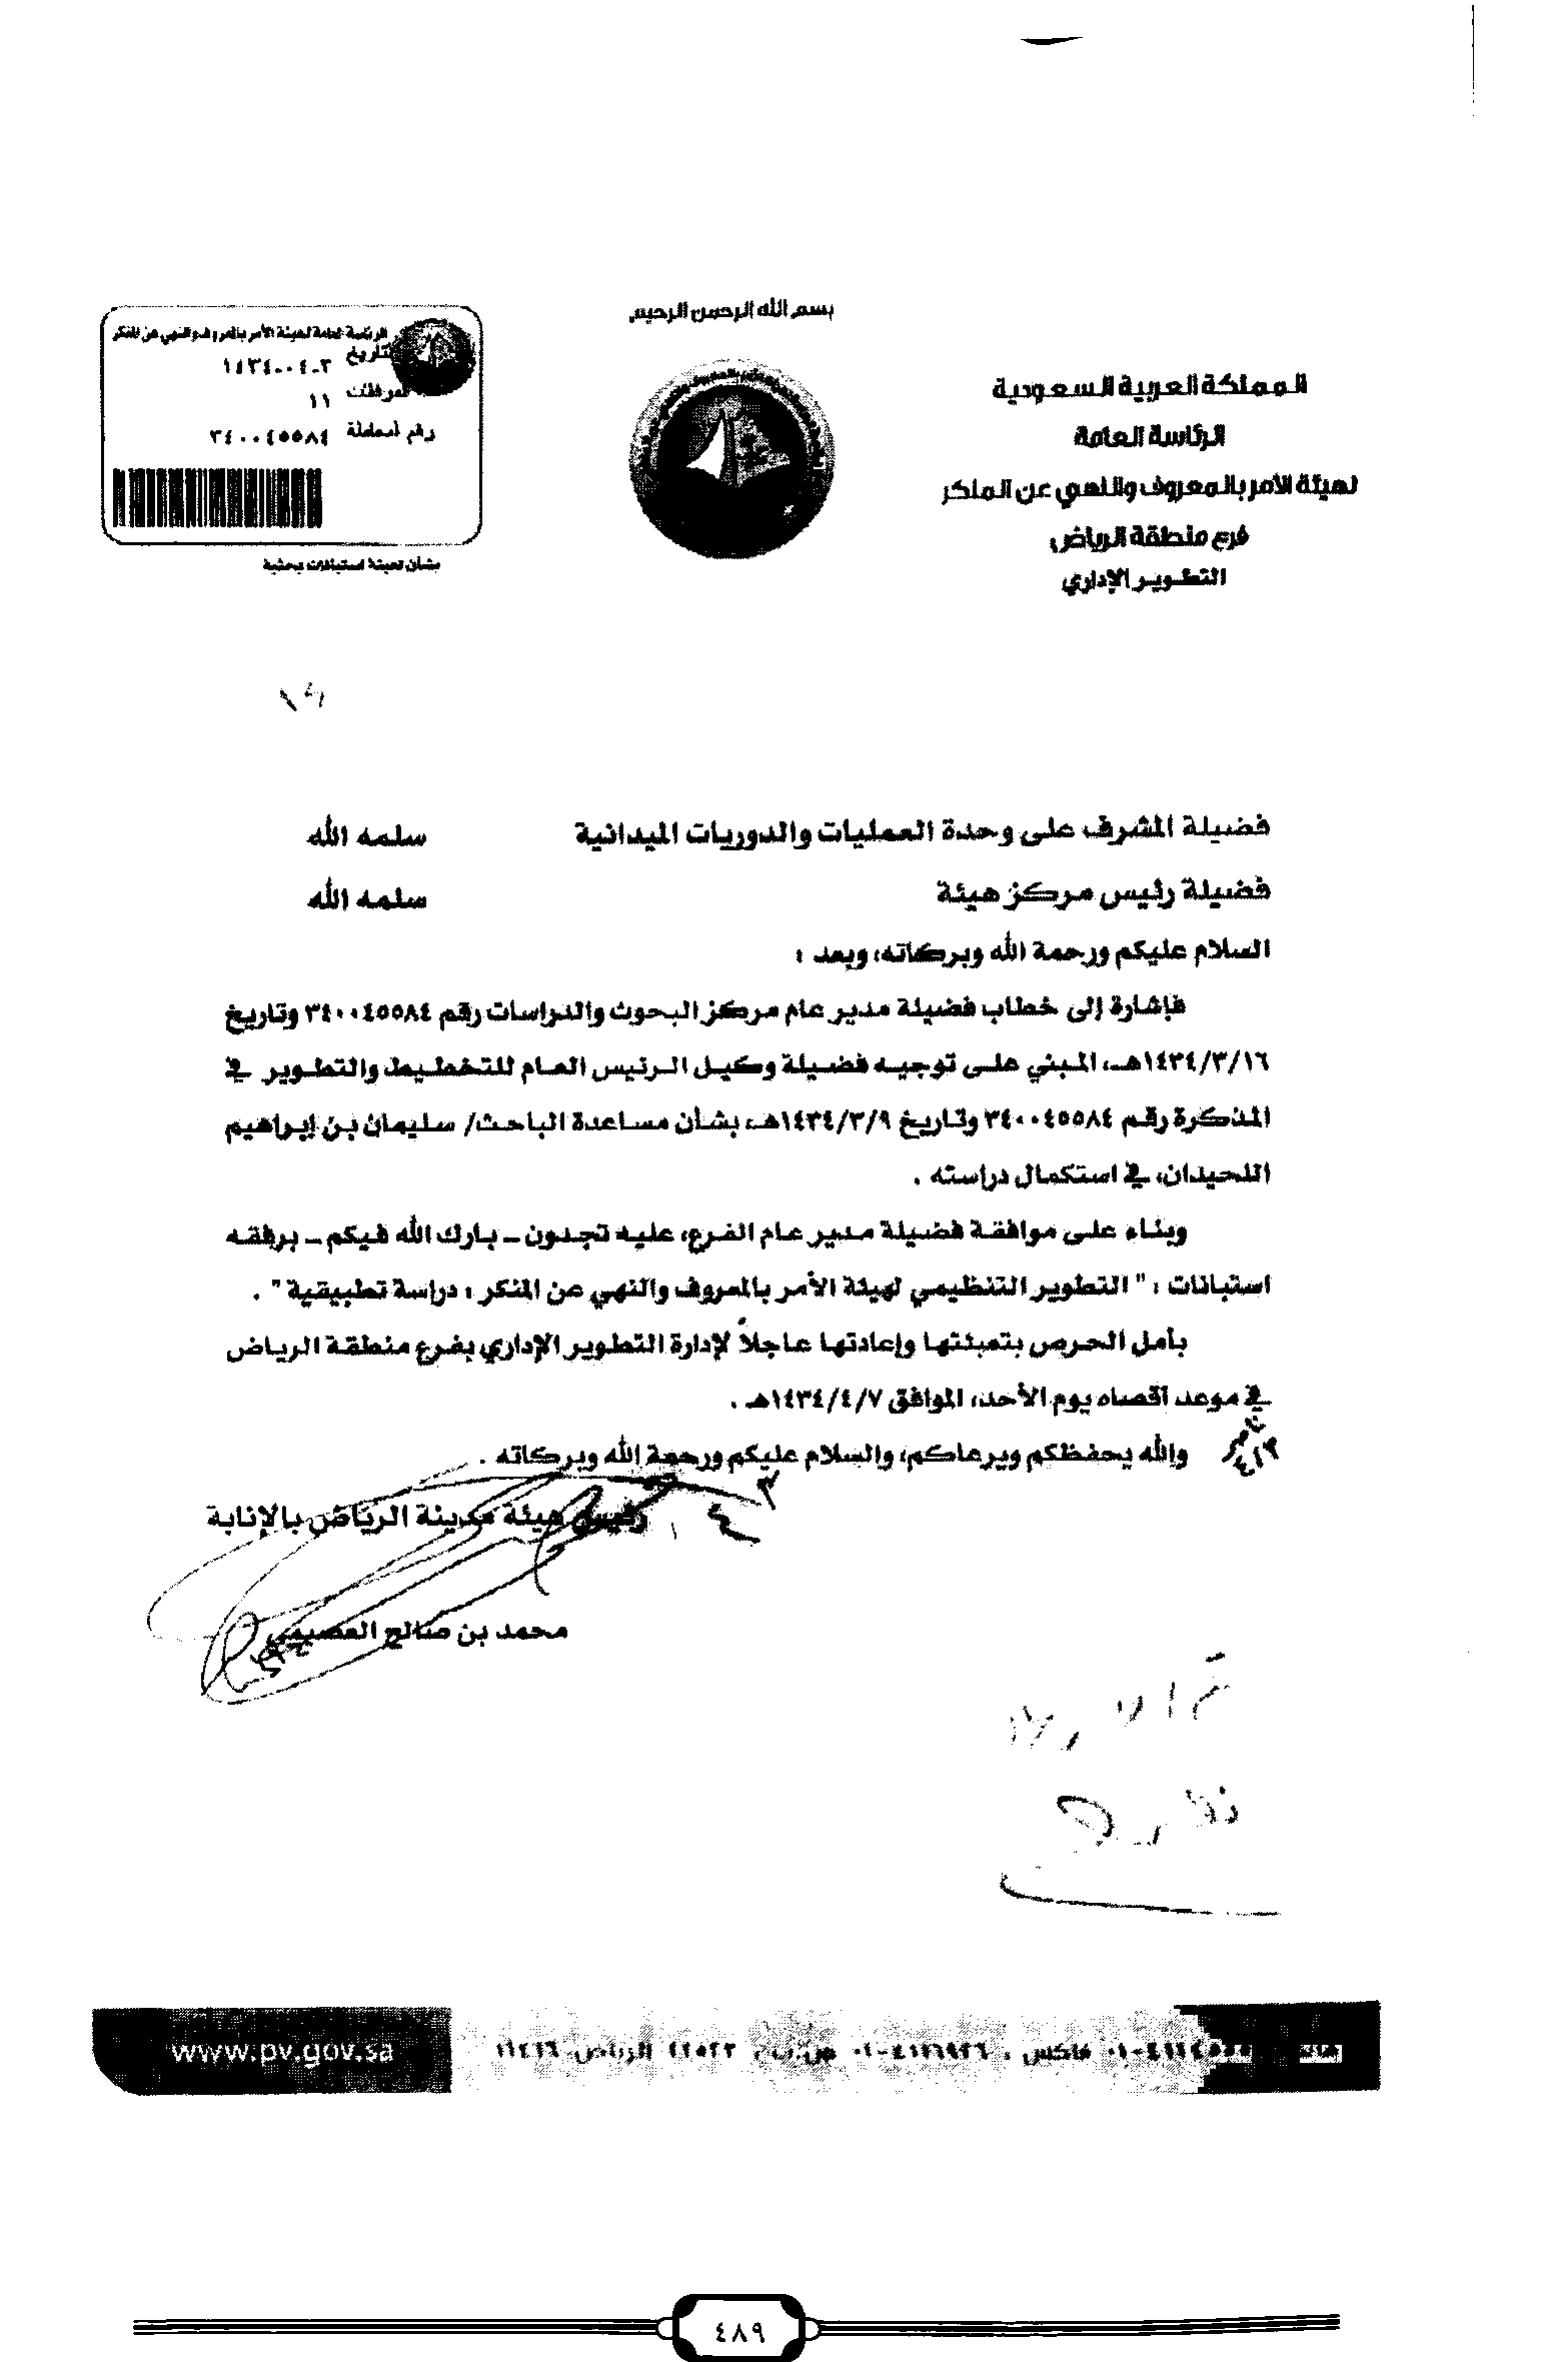 بسم الله الرحمن الرحيم
المملكة العربية السعودية
الرئاسة العامة
لهيئة الأمر بالمعروف والنهي عن المنكر
فرع منطقة الرياض
التطوير الإداري
الرئاسة العامة لهيئة الأمر بالمعروف والنهي عن المنكر
التاريخ ٣-٠٤-١٤٣٤
المرفقات ١١
رقم المعاملة ٣٤٠٠٤٥٥٨٤
بشأن تعبئة استبانات بحثية
فضيلة المشرف على وحدة العمليات والدوريات الميدانية سلمه الله
فضيلة رئيس مركز هيئة سلمه الله
السلام عليكم ورحمة الله وبركاته، وبعد :
فإشارة إلى خطاب فضيلة مدير عام مركز البحوث والدراسات رقم ٣٤٠٠٤٥٥٨٤ وتاريخ
١٤٣٤/٣/١٦هـ، المبني على توجيه فضيلة وكيل الرئيس العام للتخطيط والتطوير في
المذكرة رقم ٣٤٠٠٤٥٥٨٤ وتاريخ ١٤٣٤/٣/٩هـ، بشأن مساعدة الباحث/ سليمان بن إبراهيم
اللحيدان، في استكمال دراسته .
وبناء على موافقة فضيلة مدير عام الفرع، عليه تجدون – بارك الله فيكم – برفقه
استبانات : " التطوير التنظيمي لهيئة الأمر بالمعروف والنهي عن المنكر : دراسة تطبيقية " .
بأمل الحرص بتعبئتها وإعادتها عاجلاً لإدارة التطوير الإداري بفرع منطقة الرياض
في موعد أقصاه يوم الأحد، الموافق ١٤٣٤/٤/٧هـ .
والله يحفظكم ويرعاكم، والسلام عليكم ورحمة الله وبركاته .
رئيس هيئة مدينة الرياض بالإنابة
محمد بن صالح العصيمي
فاكس : ص.ب : ٢٢٥٢٣ الرياض ١١٤١٦
www.pv.gov.sa
٤٨٩